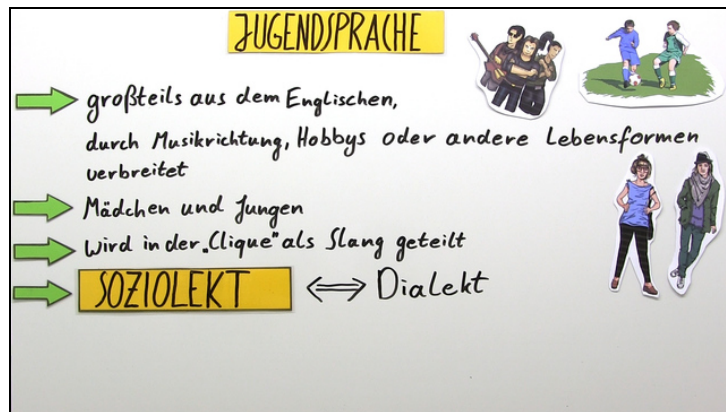 JUGENDSPRACHE
großteils aus dem Englischen,
durch Musikrichtung, Hobbys oder andere Lebensformen
verbreitet
Mädchen und Jungen
wird in der „Clique" als Slang geteilt
SOZIOLEKT ⟺ Dialekt